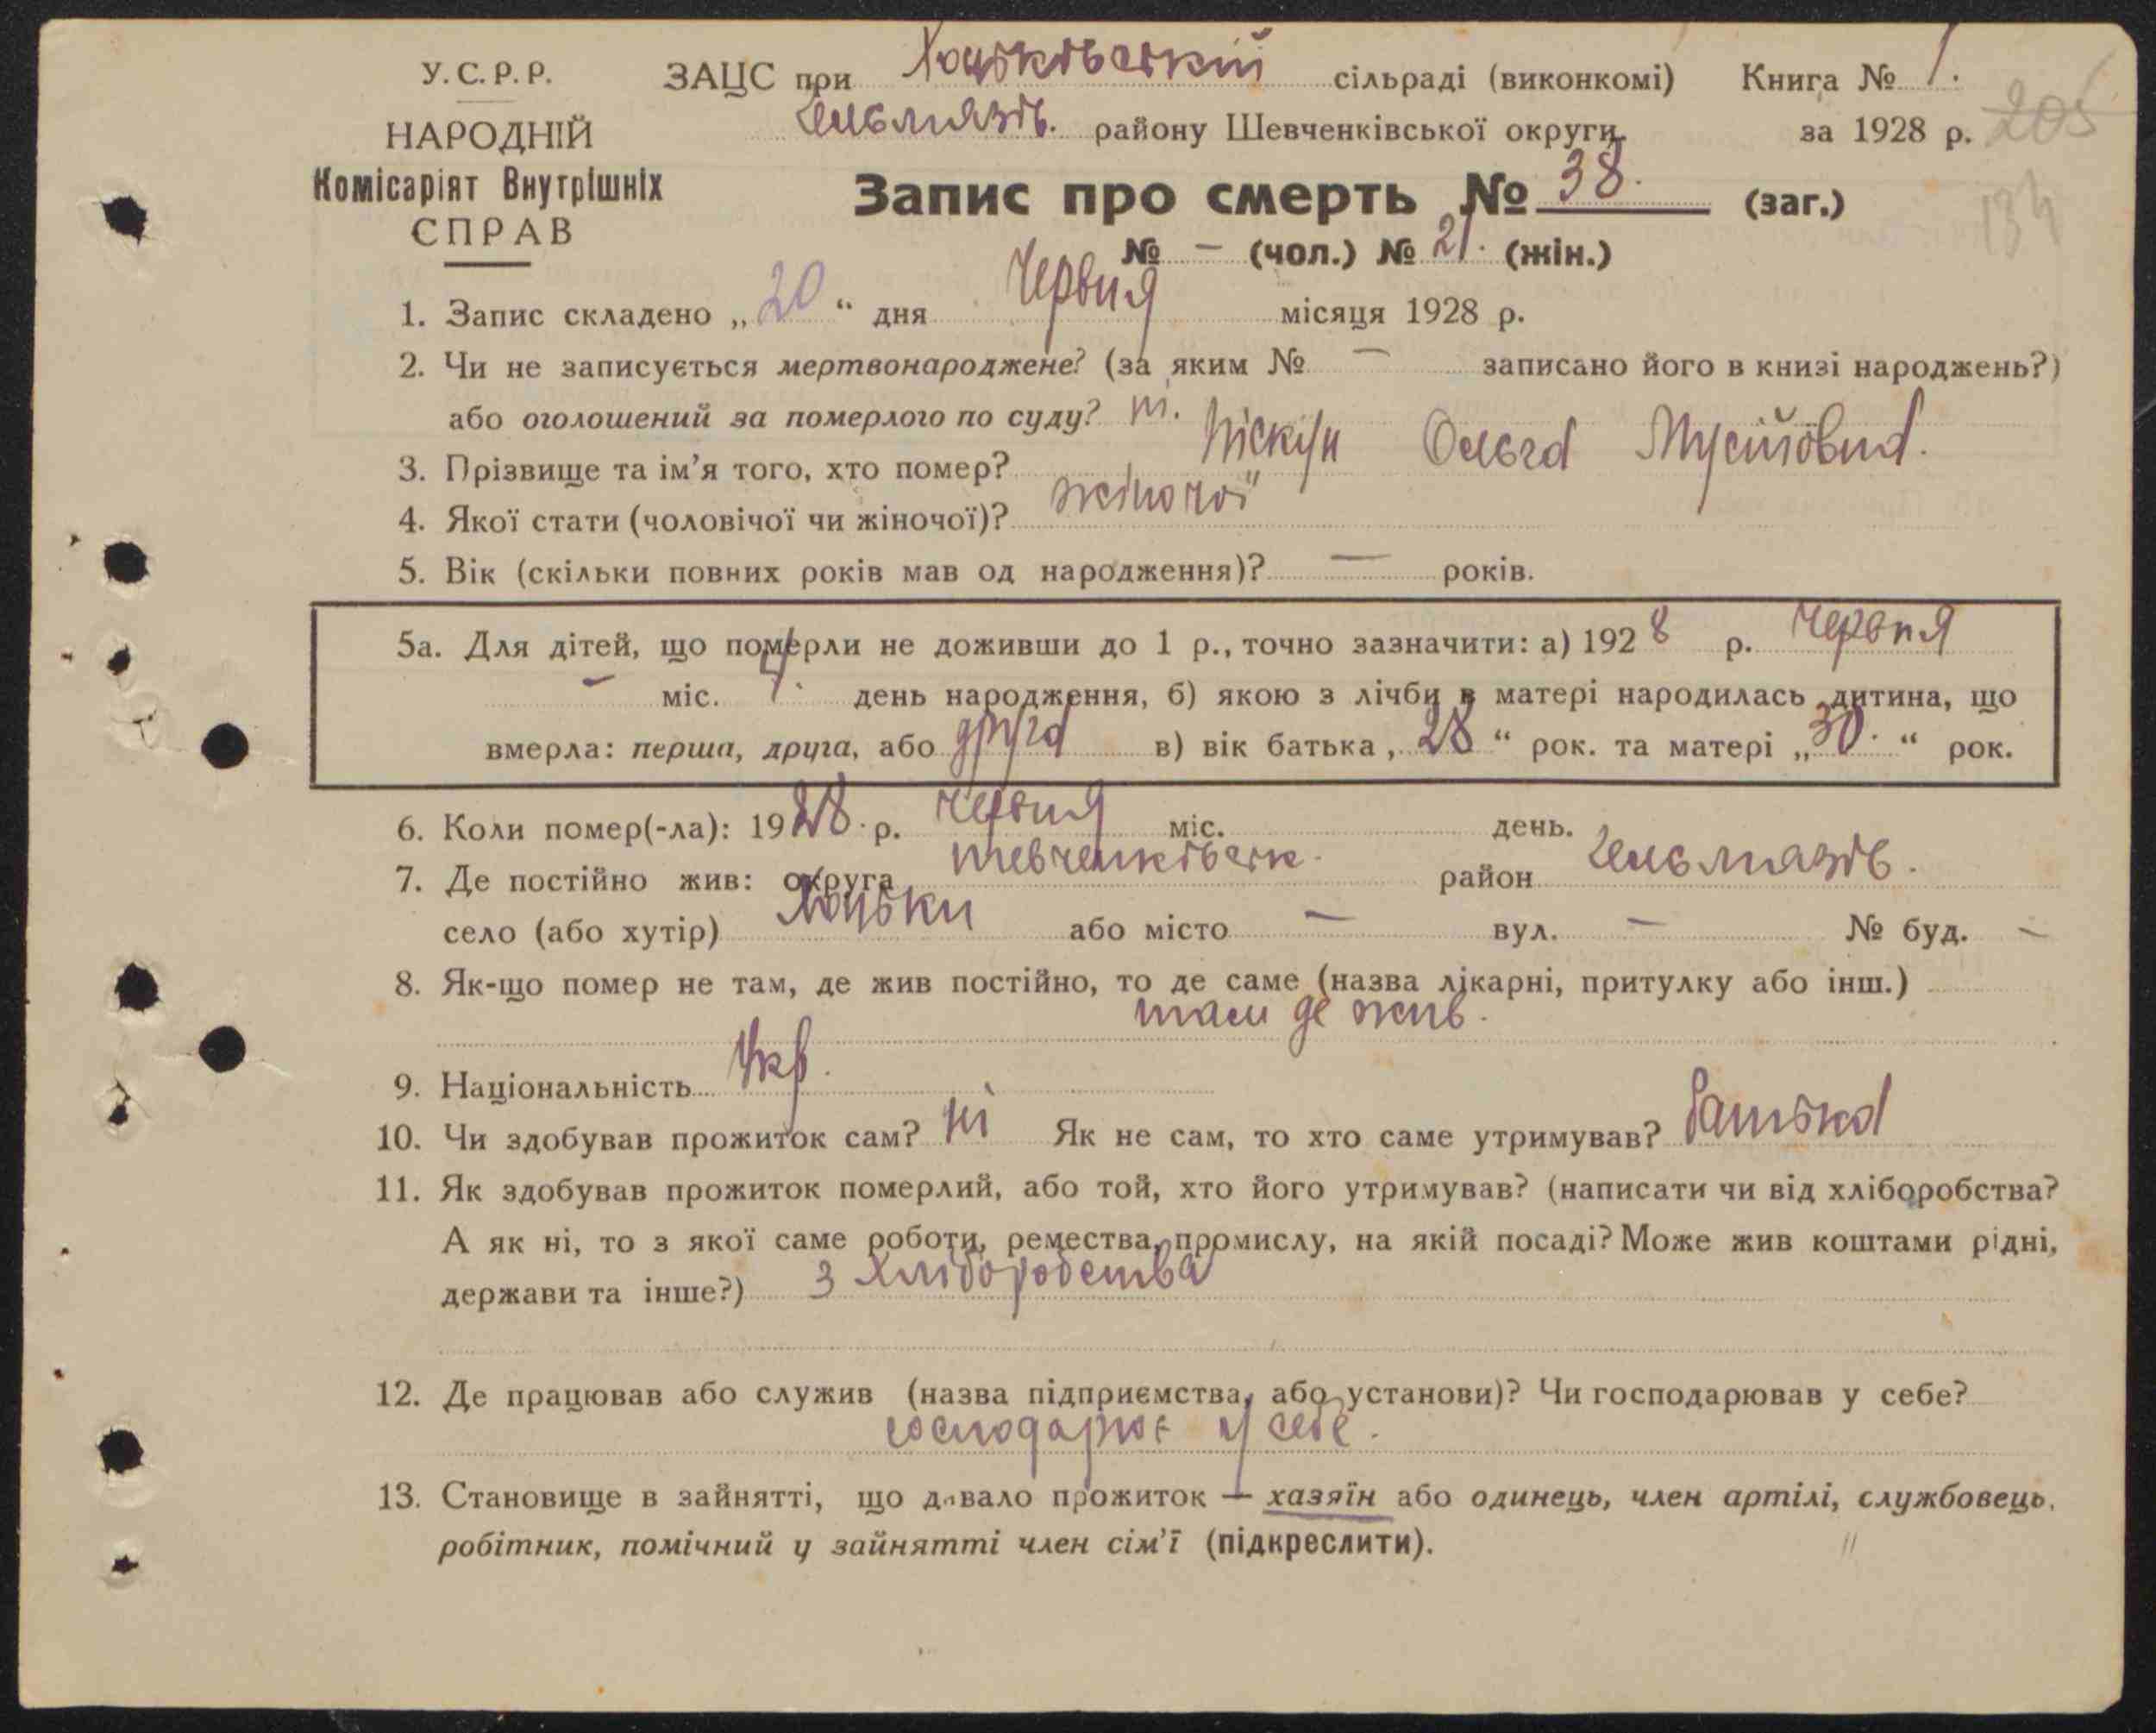 У.С.Р.Р. ЗАЦС при Хоцьківській сільраді (виконкомі) Книга № 1.
НАРОДНІЙ Гельмязів. району Шевченківської округи. за 1928 р. 205
Комісаріят Внутрішніх Запис про смерть № 38. (заг.) 134
СПРАВ № — (чол.) № 21. (жін.)
1. Запис складено „20“ дня Червня місяця 1928 р.
2. Чи не записується мертвонароджене? (за яким № — записано його в книзі народжень?)
або оголошений за померлого по суду?
3. Прізвище та ім’я того, хто помер? Піскун Ольга
4. Якої стати (чоловічої чи жіночої)? жіночої
5. Вік (скільки повних років мав од народження)? — років.
5а. Для дітей, що померли не доживши до 1 р., точно зазначити: а) 1928 р. Червня
— міс. 4. день народження, б) якою з лічби в матері народилась дитина, що
вмерла: перша, друга, або друга в) вік батька „28“ рок. та матері „30.“ рок.
6. Коли помер(-ла): 1928. р. Червня міс. день.
7. Де постійно жив: округа Шевченківськ. район Гельмязів.
село (або хутір) Хоцьки або місто — вул. — № буд. —
8. Як-що помер не там, де жив постійно, то де саме (назва лікарні, притулку або інш.)
там де жив.
9. Національність Укр.
10. Чи здобував прожиток сам? ні Як не сам, то хто саме утримував? батько
11. Як здобував прожиток померлий, або той, хто його утримував? (написати чи від хліборобства?
А як ні, то з якої саме роботи, ремества, промислу, на якій посаді? Може жив коштами рідні,
держави та інше?) з хліборобства
12. Де працював або служив (назва підприємства, або установи)? Чи господарював у себе?
господарює у себе.
13. Становище в зайнятті, що давало прожиток — хазяїн або одинець, член артілі, службовець,
робітник, помічний у зайнятті член сім’ї (підкреслити).